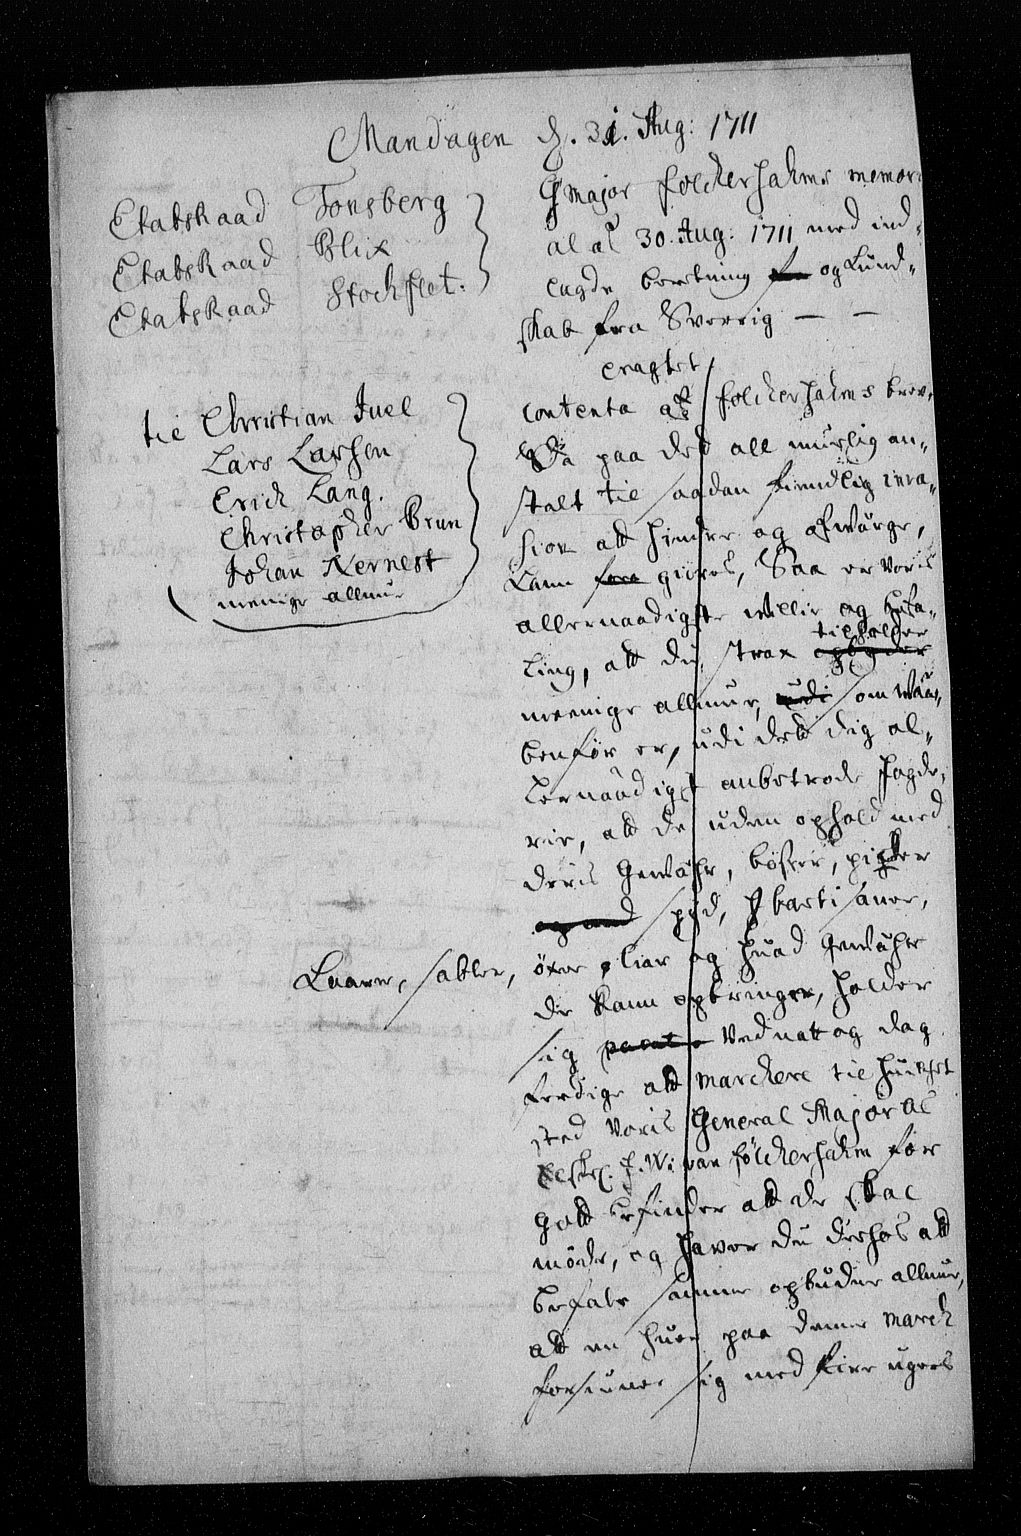 Mandagen d. 31. Aug: 1711
Etatsraad Tonsberg
Etatsraad Blix
Etatsraad Stockflet.
G major Folckersahms memori
al af 30. Aug: 1711 med ind-
lagde beretning og Kund-
skab fra Sverrig — —
eragtet
til Christian Juel
Lars Larsen
Erich Lang.
Christopher Brun
Johan Kernest
menige allmue
contenta af Folckersahms brev.
Da paa det all muelig an-
stalt til saadan fiendlig inva-
sion att hindre og afwärge,
kann giöres, Saa er voris
allernaadigste willie og befa-
ling, att du strax tilholder opbyder
meenige allmue, udi som waa-
benför er, udi dett dig al-
lernaadigst anbetroede fogde-
rie, att de uden ophold med
deris Gewähr, bösser, piger
og med spyd, bartisaner,
Laaner, sabler, öxer, liar og huad Gewähr
de kann opbringe, holder
sig parat ved natt og dag
ferdige att marchere til huilchet
sted voris General Major af
F. W. van Fölckersahm för
gott befinder att de skal
möde, og haver du derhos att
befale samme opbudne allmue,
att en huer paa denne march
forsiuner sig med fire ugers